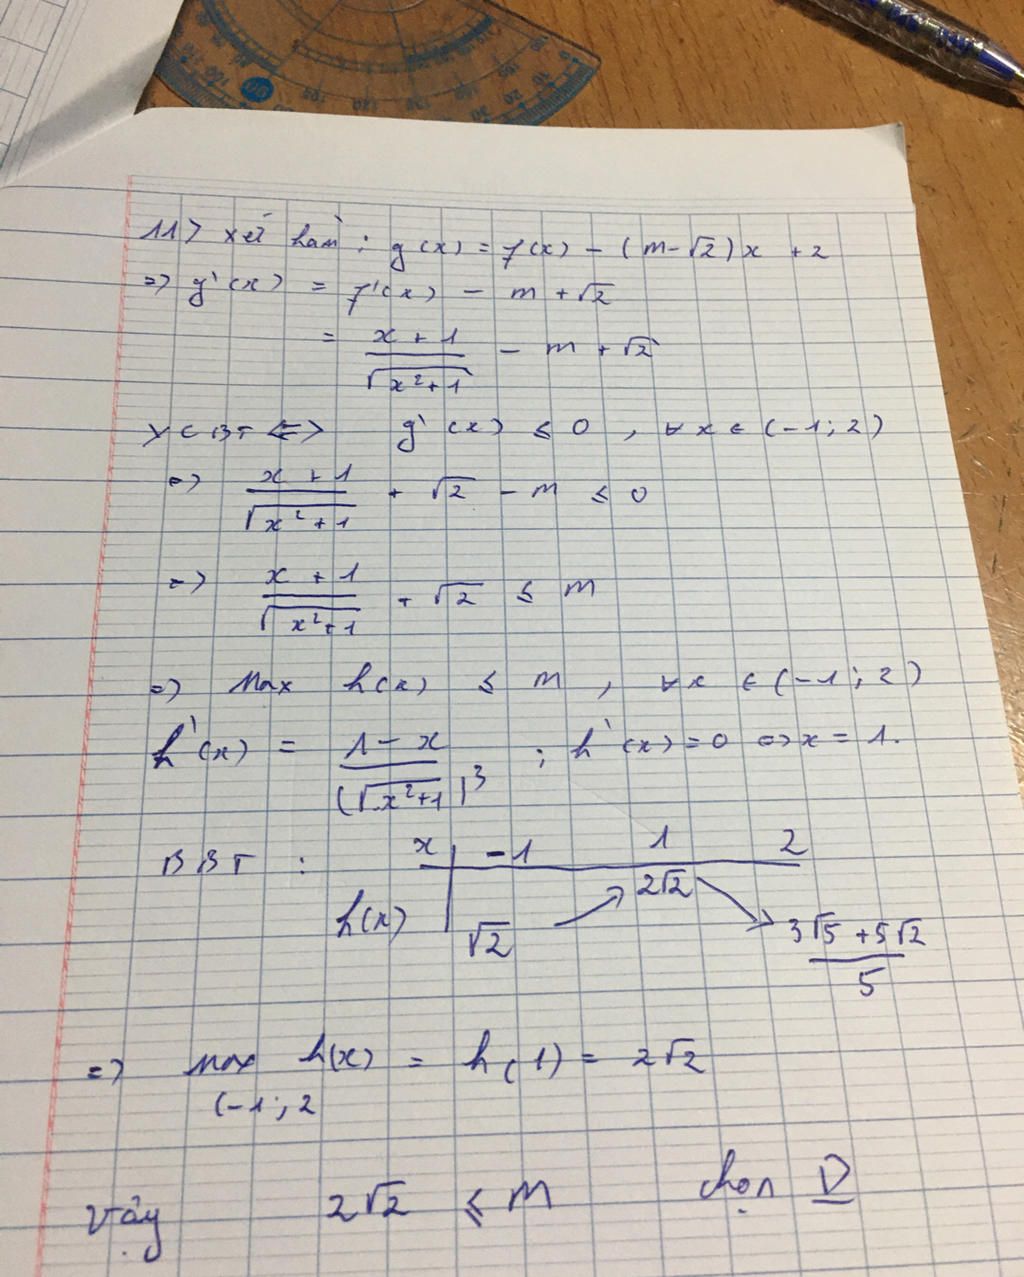 11> Xét hàm : g(x) = f(x) - (m-√2)x + 2
=> g'(x) = f'(x) - m + √2
= (x + 1)/(√(x²+1)) - m + √2
YCBT <=> g'(x) ≤ 0 , ∀x ∈ (-1; 2)
=> (x + 1)/(√(x²+1)) + √2 - m ≤ 0
=> (x + 1)/(√(x²+1)) + √2 ≤ m
=> Max h(x) ≤ m , ∀x ∈ (-1; 2)
h'(x) = (1 - x)/((√(x²+1))³) ; h'(x) = 0 <=> x = 1.
BBT : x | -1 1 2
h(x) | √2 ↗ 2√2 ↘ (3√5 + 5√2)/5
=> max h(x) = h(1) = 2√2
(-1; 2
Vậy 2√2 ≤ m chọn D